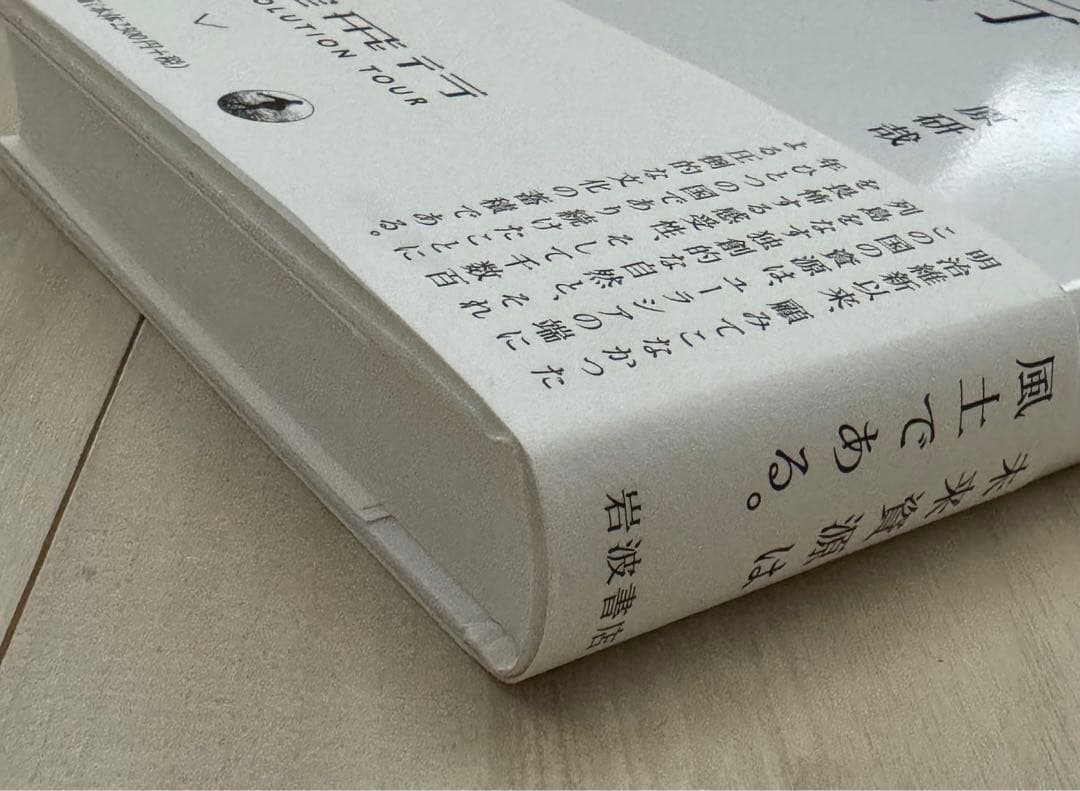 行
原研哉
飛行
OLUTION TOUR
本体2,900円+税)
明治維新以来、顧みてこなかった
この国の資源は、ユーラシアの端に
列島をなす独創的な自然と、それ
を畏怖する感受性、そして千数百
年ひとつの国であり続けたことに
よる圧倒的な文化の蓄積である。
未来資源は
風土である。
岩波書店